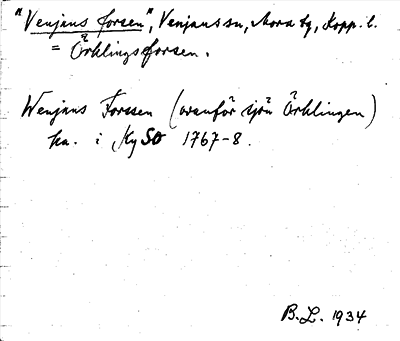 "Venjans forsen", Venjans sn, Mora tg, Kopp. l.
= Örklingsforsen.
Wenjans Forssen (ovanför sjön Örklingen)
ka. i KySO 1767-8.
B.L. 1934